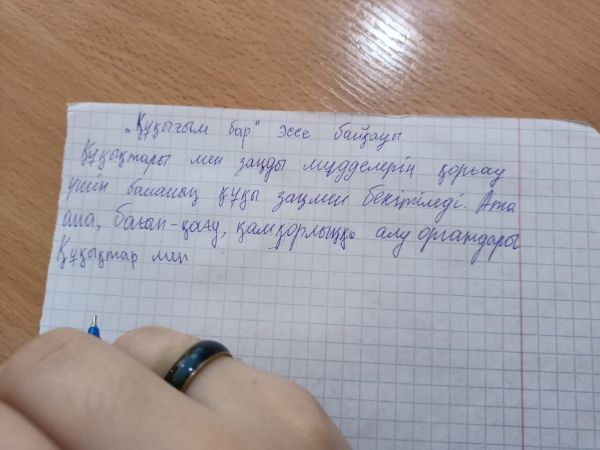 „Құқығым бар" эссе байқауы
Құқықтары мен заңды мүдделерін қорғау
үшін баланың құқы заңмен бекітіледі. Ата
ана, бағып-қағу, қамқорлыққа алу органдары
Құқықтар мен